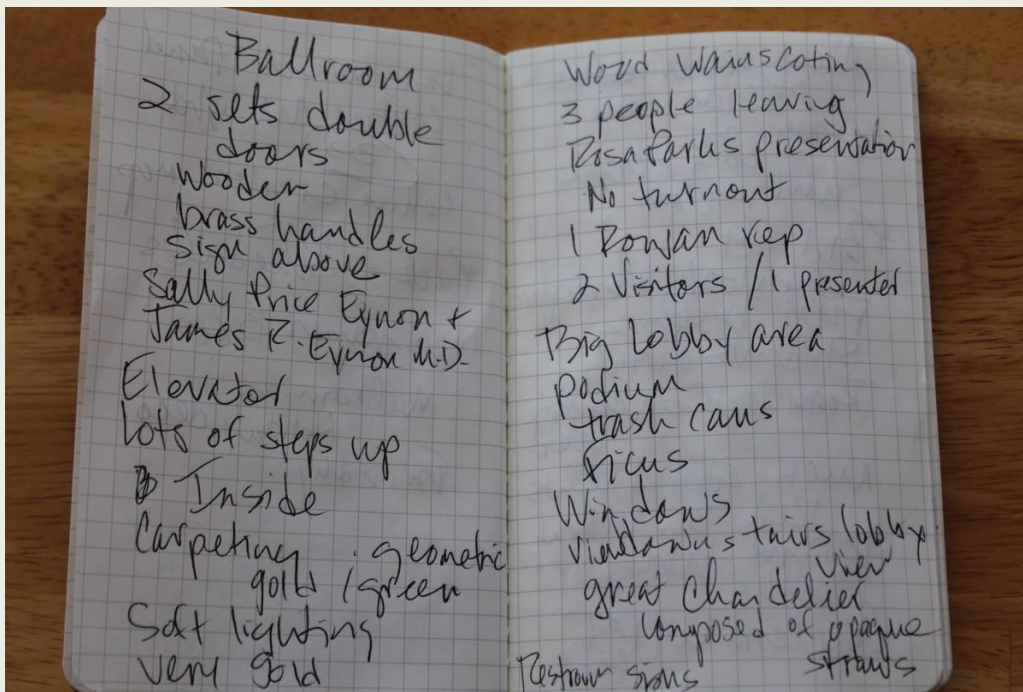 Ballroom
2 sets double
doors
Wooden
brass handles
Sign above
Sally Price Eynon +
James R. Eynon M.D.
Elevator
lots of steps up
Inside
Carpeting geometric
gold / green
Soft lighting
very gold
Wood Wainscoting
3 people leaving
Rosa Parks presentation
No turnout
1 Rowan rep
2 Visitors / 1 presenter
Big lobby area
podium
trash cans
ficus
Windows
view downstairs lobby
view
great Chandelier
composed of opaque
straws
Restroom signs